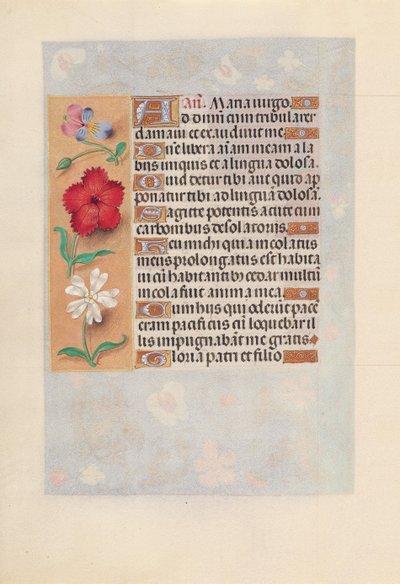 Añ. Maria uirgo.
Ad dñm cum tribularer
clamaui et exaudiuit me.
Dñe libera animam meam a la
bijs iniquis et a lingua dolosa.
Quid detur tibi aut quid ap
ponatur tibi ad linguā dolosā.
Sagitte potentis acute cum
carbonibus desolatorijs
Heu michi quia incolatus
meus prolongatus est habita
ui cū habitantibꝰ cedar multū
incola fuit anima mea.
Cum hijs qui oderūt pacē
eram pacificus cū loquebar il
lis impugnabāt me gratis
Gloria patri et filio